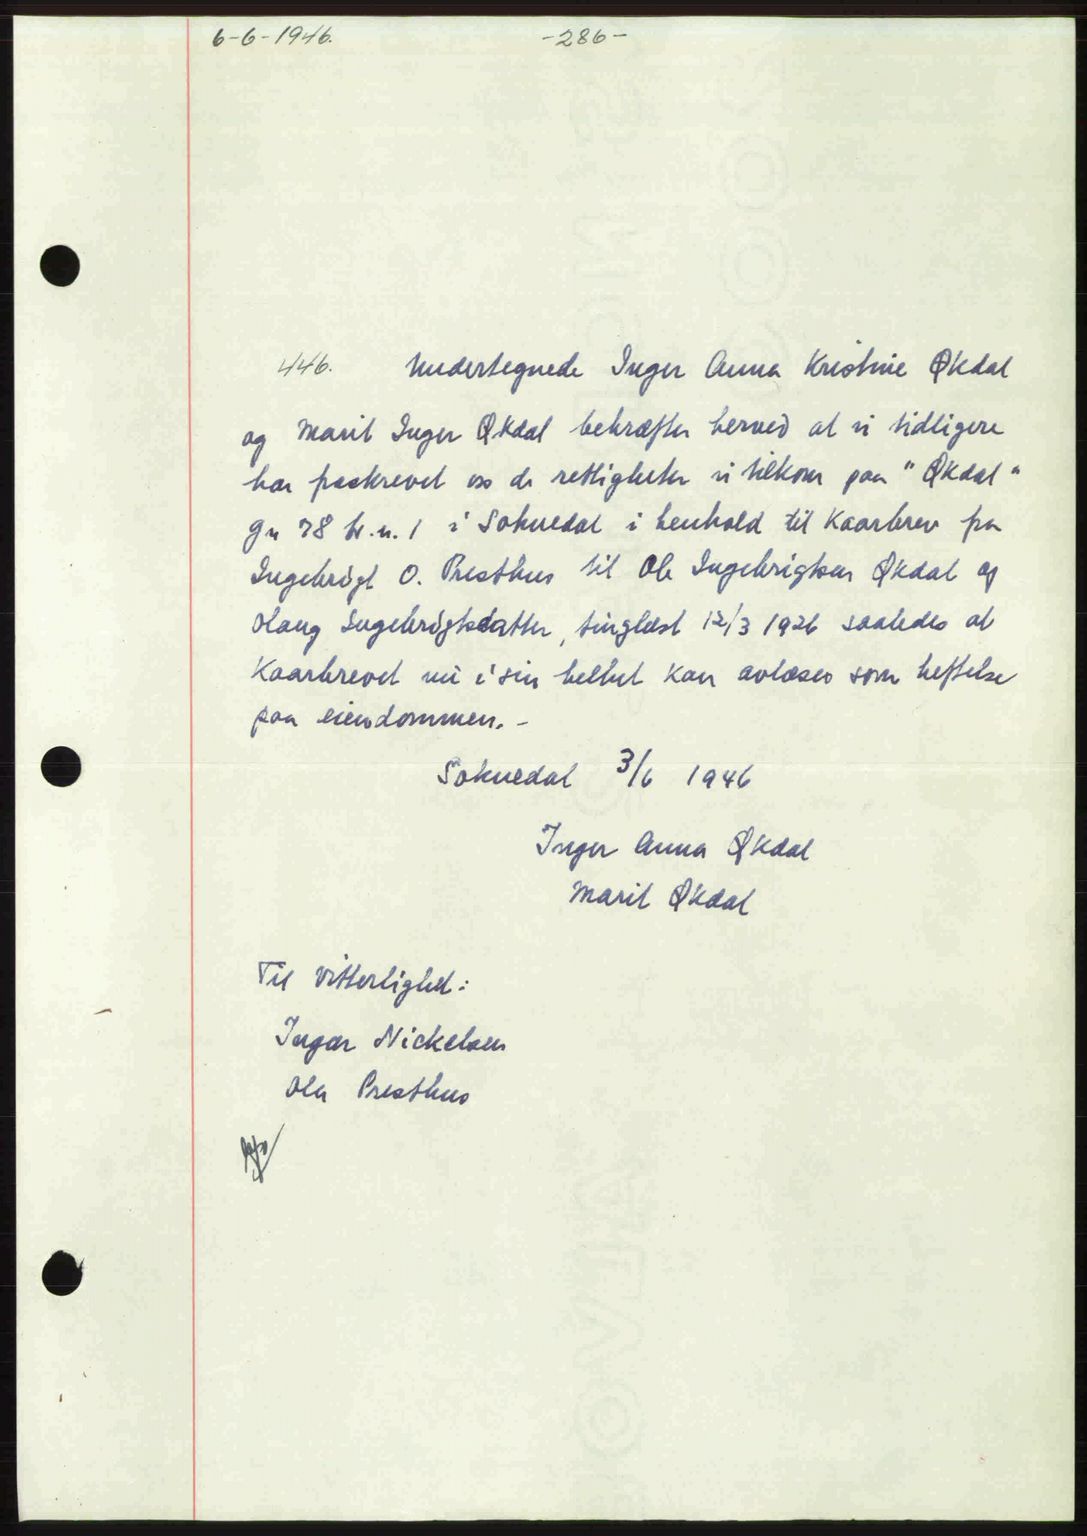 6-6-1946.
-286-
446. Undertegnede Inger Anna Kristine Økdal
og Marit Inger Økdal bekræfter herved at vi tidligere
har fraskrevet oss de rettigheter vi tilkom paa "Økdal"
gn 78 br.n. 1 i Soknedal i henhold til Kaarbrev fra
Ingebrigt O. Presthus til Ole Ingebrigtsen Økdal og
Olaug Ingebrigtsdatter, tinglæst 12/3 1926 saaledes at
Kaarbrevet nu i sin helhet kan avlæses som heftelse
paa eiendommen. -
Soknedal 3/6 1946
Inger Anna Økdal
Marit Økdal
Til Vitterlighet:
Ingar Nickelsen
Ola Presthus